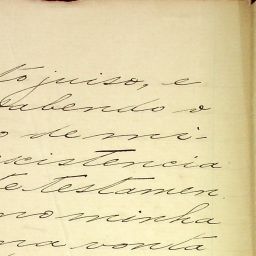 to juiso, e
sabendo o
o de mi-
existencia
te testamen
mo minha
ma vonta